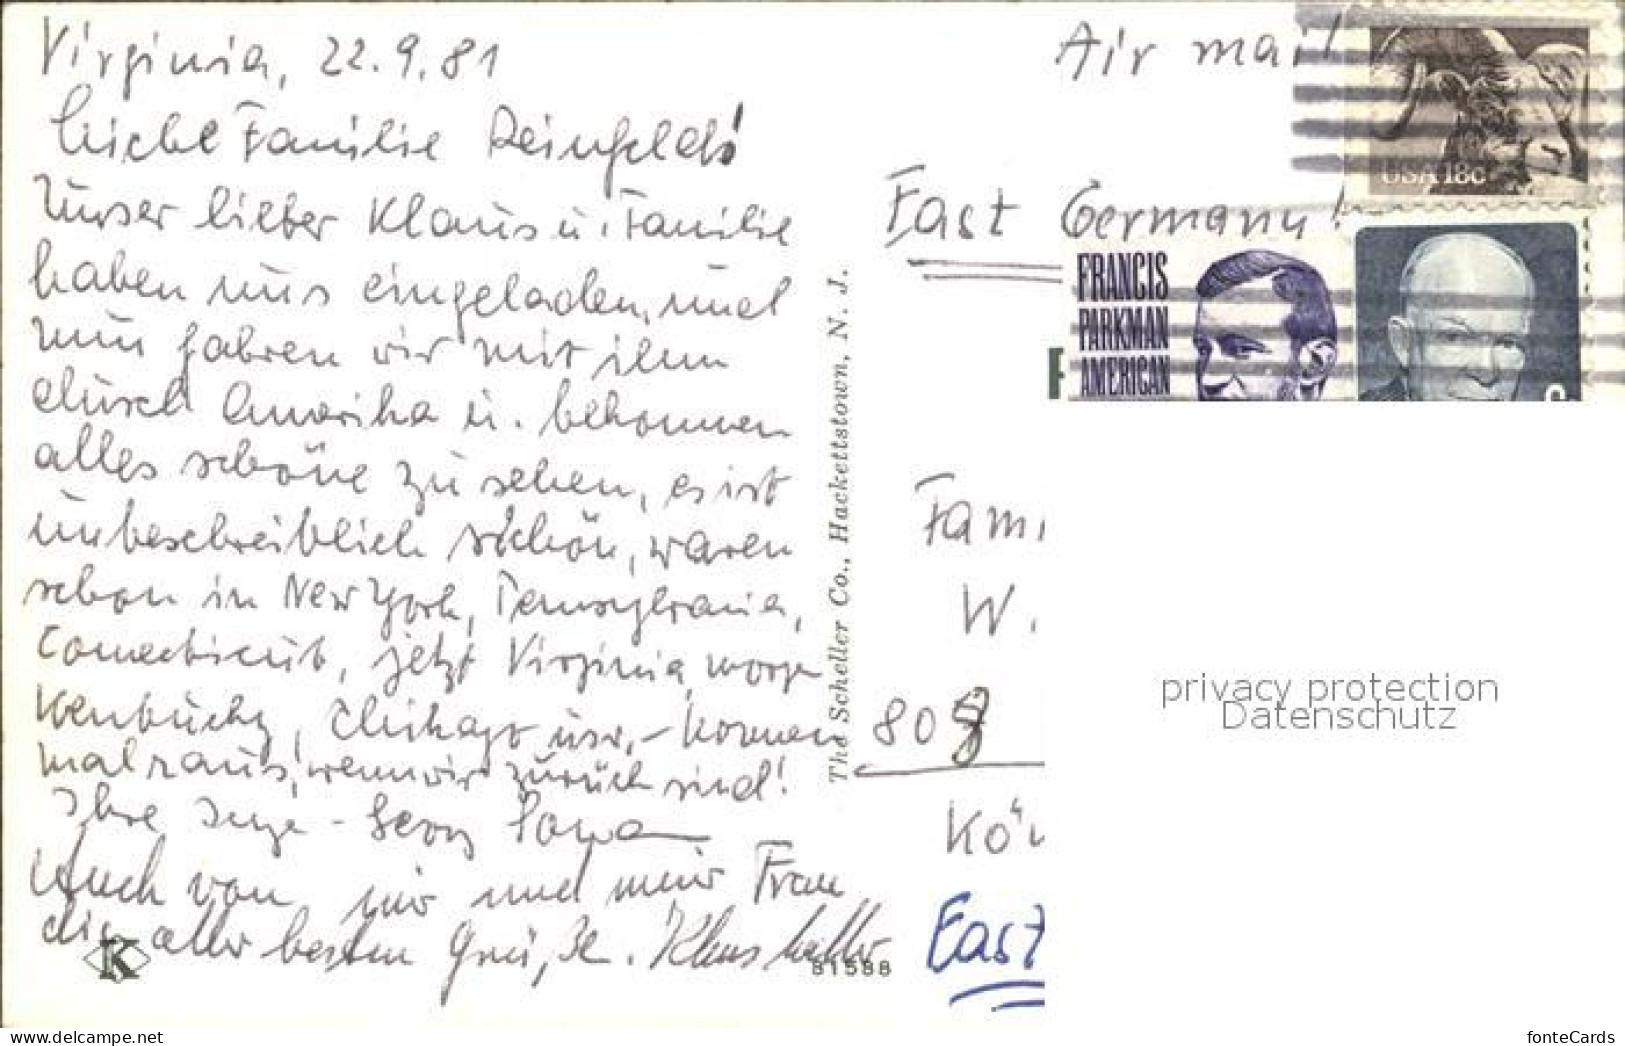 Virginia, 22.9.81
Liebe Familie Reinfeld!
Unser lieber Klaus u. Familie
haben uns eingeladen, und
nun fahren wir mit ihm
durch Amerika u. bekommen
alles schöne zu sehen, es ist
unbeschreiblich schön, waren
schon in New York, Pennsylvania,
Connecticut, jetzt Virginia, morgen
Kentucky, Chikago usw, – kommen
mal raus, wenn wir zurück sind!
Ihre Inge - Georg
Auch von mir und meiner Frau
die aller besten Grüße. Klaus
The Scheller Co., Hackettstown, N. J.
K
81588
Air mail
USA 18c
East Germany!
FRANCIS
PARKMAN
AMERICAN
Fami
W.
80
Kö
East
privacy protection
Datenschutz
https://www.delcampe.net
fonteCards